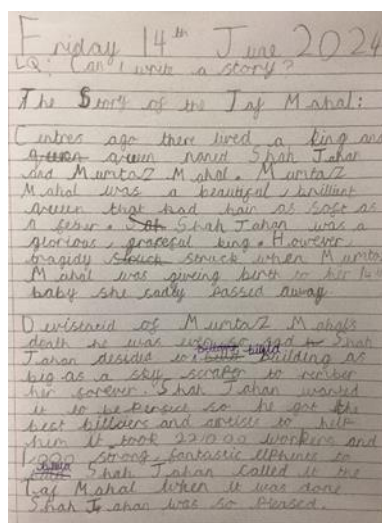 Friday 14th June 2024
LQ: Can I write a story?
The Story of the Taj Mahal:
Centres ago there lived a king and
queen named Shah Jahan
and Mumtaz Mahal. Mumtaz
Mahal was a beautiful, brilliant
queen that had hair as soft as
a fether. Shah Jahan was a
glorious, graceful king. However,
tragidy struck when Mumtaz
Mahal was giveing birth to her
baby she sadly passed away
of Mumtaz Mahals
death he was Shah
Jahan desided to build Building as
big as a sky scraper to rember
her forever. Shah Jahan wanted
it to be perfect so he got the
best billders and artists to help
him it took 22,000 workers and
1,000 strong, fantastic
Shah Jahan called it the
Taj Mahal when it was done
Shah Jahan was so pleased.